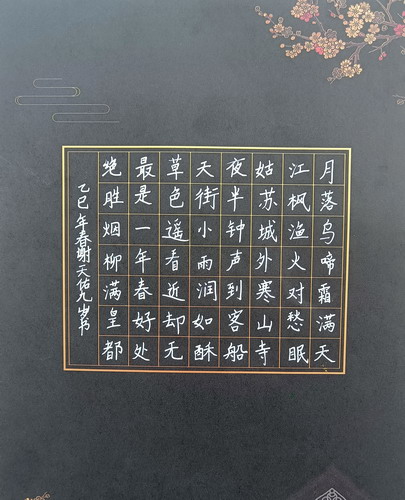 月落乌啼霜满天
江枫渔火对愁眠
姑苏城外寒山寺
夜半钟声到客船
天街小雨润如酥
草色遥看近却无
最是一年春好处
绝胜烟柳满皇都
乙巳年春谢天佑九岁书